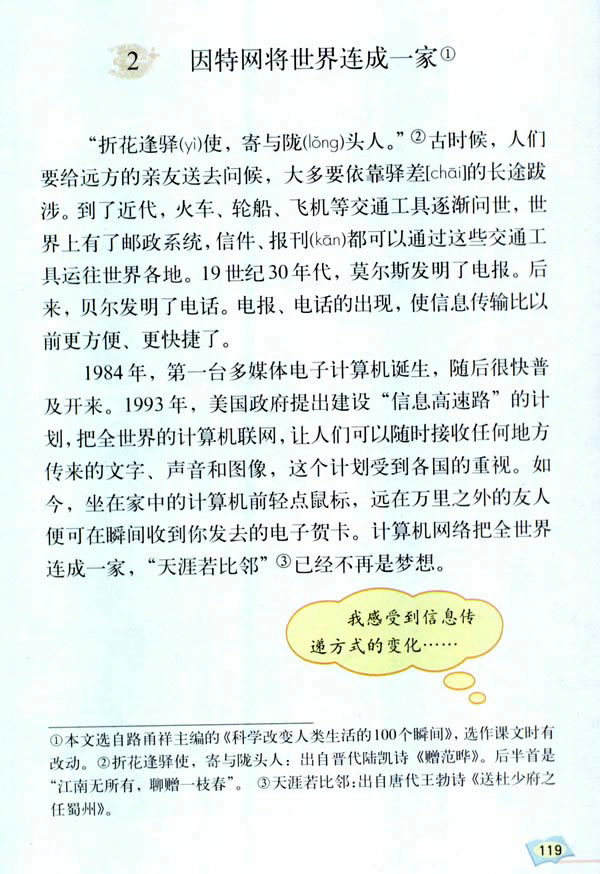 2 因特网将世界连成一家①
“折花逢驿(yì)使，寄与陇(lǒng)头人。”②古时候，人们
要给远方的亲友送去问候，大多要依靠驿差[chāi]的长途跋
涉。到了近代，火车、轮船、飞机等交通工具逐渐问世，世
界上有了邮政系统，信件、报刊(kān)都可以通过这些交通工
具运往世界各地。19世纪30年代，莫尔斯发明了电报。后
来，贝尔发明了电话。电报、电话的出现，使信息传输比以
前更方便、更快捷了。
1984年，第一台多媒体电子计算机诞生，随后很快普
及开来。1993年，美国政府提出建设“信息高速路”的计
划，把全世界的计算机联网，让人们可以随时接收任何地方
传来的文字、声音和图像，这个计划受到各国的重视。如
今，坐在家中的计算机前轻点鼠标，远在万里之外的友人
便可在瞬间收到你发去的电子贺卡。计算机网络把全世界
连成一家，“天涯若比邻”③已经不再是梦想。
我感受到信息传
递方式的变化……
①本文选自路甬祥主编的《科学改变人类生活的100个瞬间》，选作课文时有
改动。②折花逢驿使，寄与陇头人：出自晋代陆凯诗《赠范晔》。后半首是
“江南无所有，聊赠一枝春”。 ③天涯若比邻：出自唐代王勃诗《送杜少府之
任蜀州》。
119